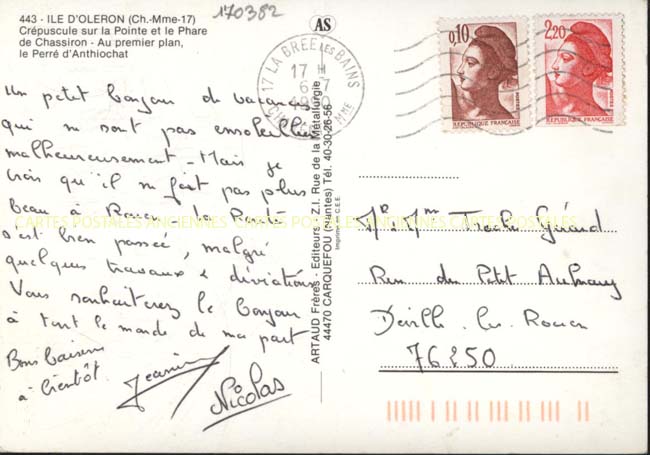 443 - ILE D'OLERON (Ch.-Mme-17)
Crépuscule sur la Pointe et le Phare
de Chassiron - Au premier plan,
le Perré d'Anthiochat
170382
AS
17 LA BREE LES BAINS
17 H
6-7
0,10
2,20
REPUBLIQUE FRANÇAISE
REPUBLIQUE FRANÇAISE
Un petit bonjour de vacances
qui ne sont pas ensoleillées
malheureusement - Mais je
crois qu'il ne fait pas plus
beau à Rouen. La Route
s'est bien passée, malgré
quelques travaux & déviations
Vous souhaiterez le bonjour
à tout le monde de ma part
Bons baisers
à bientôt.
Nicolas
ARTAUD Frères - Editeurs - Z.I. Rue de la Métallurgie
44470 CARQUEFOU (Nantes) Tél. 40-30-26-56
Imprimé en C.E.E.
Mr. Mm Gérard
Rue du Petit Aulnay
Déville les Rouen
76250
CARTES POSTALES ANCIENNES CARTES POSTALES ANCIENNES CARTES POSTALES